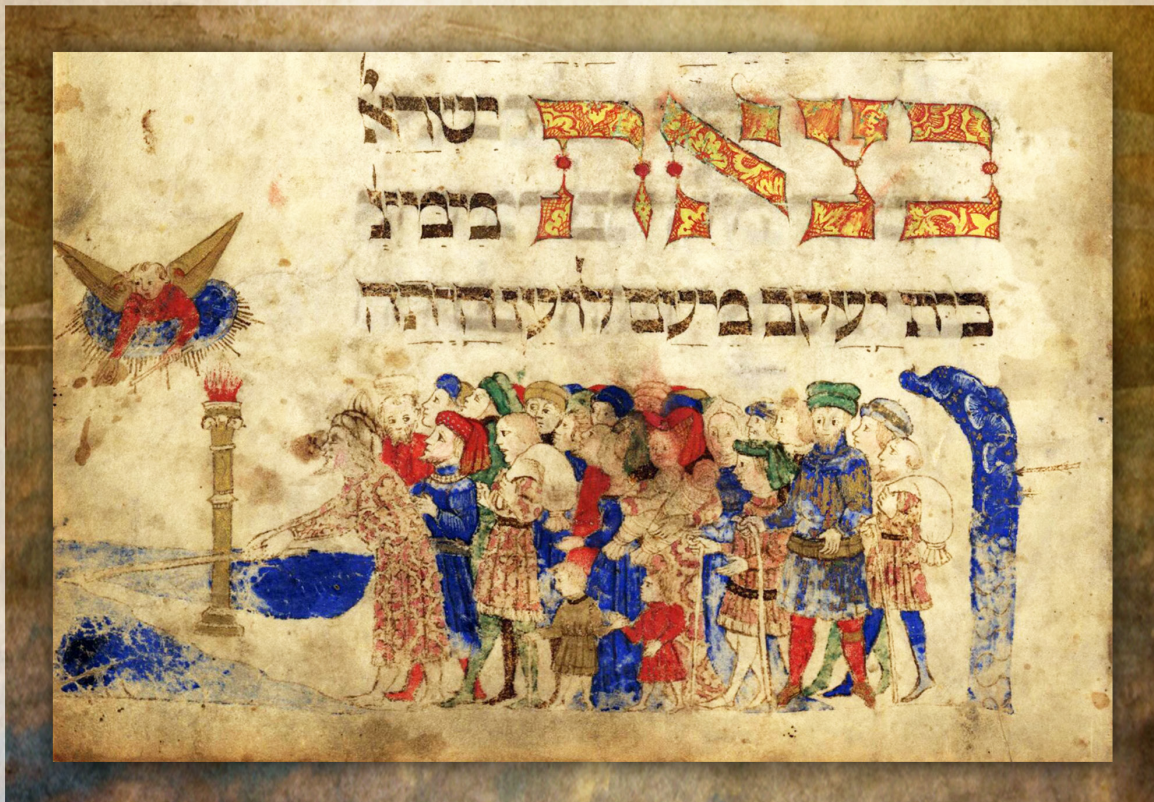 בצאת ישרﭏ
בית יעקב מעם לועז היתה